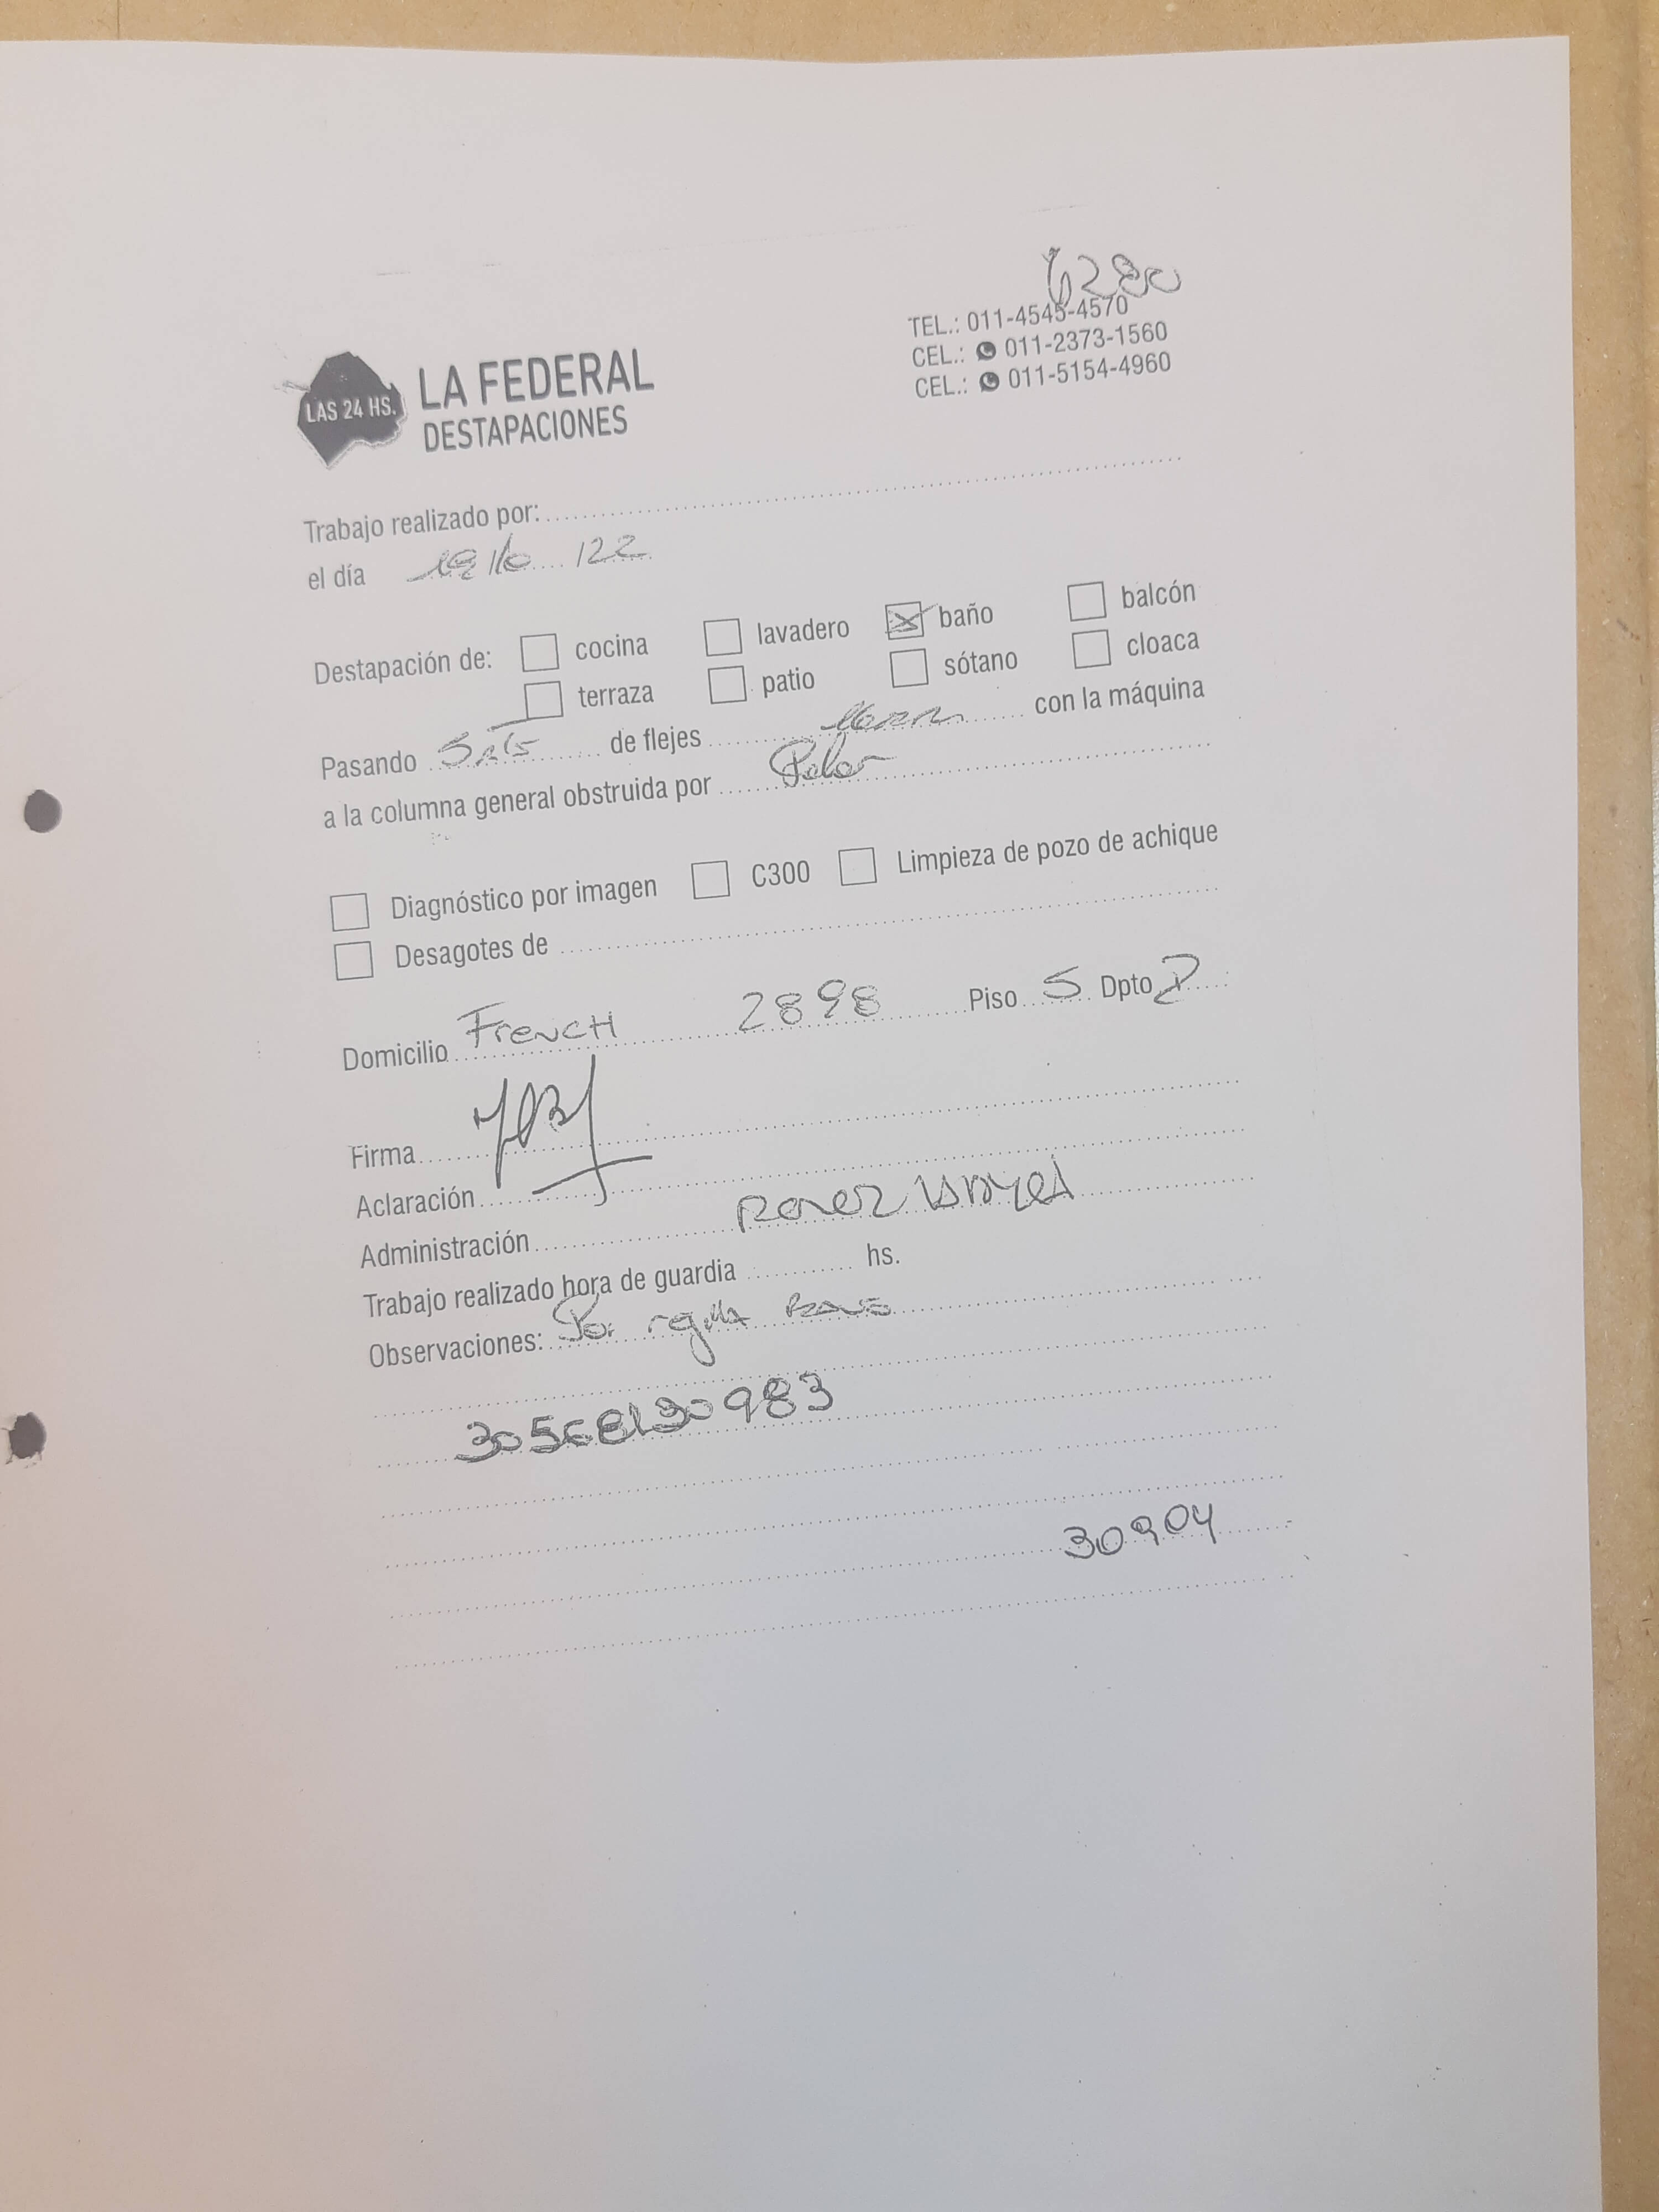 6280
TEL.: 011-4545-4570
CEL.: 011-2373-1560
CEL.: 011-5154-4960
LAS 24 HS.
LA FEDERAL
DESTAPACIONES
Trabajo realizado por:
el día 19/10/22
Destapación de: cocina lavadero baño balcón
terraza patio sótano cloaca
Pasando 5 mts de flejes con la máquina
a la columna general obstruida por Pelos
Diagnóstico por imagen C300 Limpieza de pozo de achique
Desagotes de
Domicilio French 2898 Piso 5 Dpto
Firma
Aclaración
Administración
Trabajo realizado hora de guardia hs.
Observaciones: Por rejilla
30568130983
30904